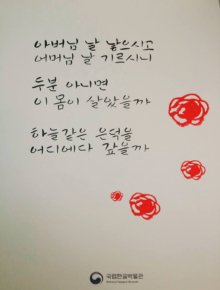 아버님 날 낳으시고
어머님 날 기르시니
두분 아니면
이 몸이 살았을까
하늘같은 은덕을
어디에다 갚을까
국립한글박물관